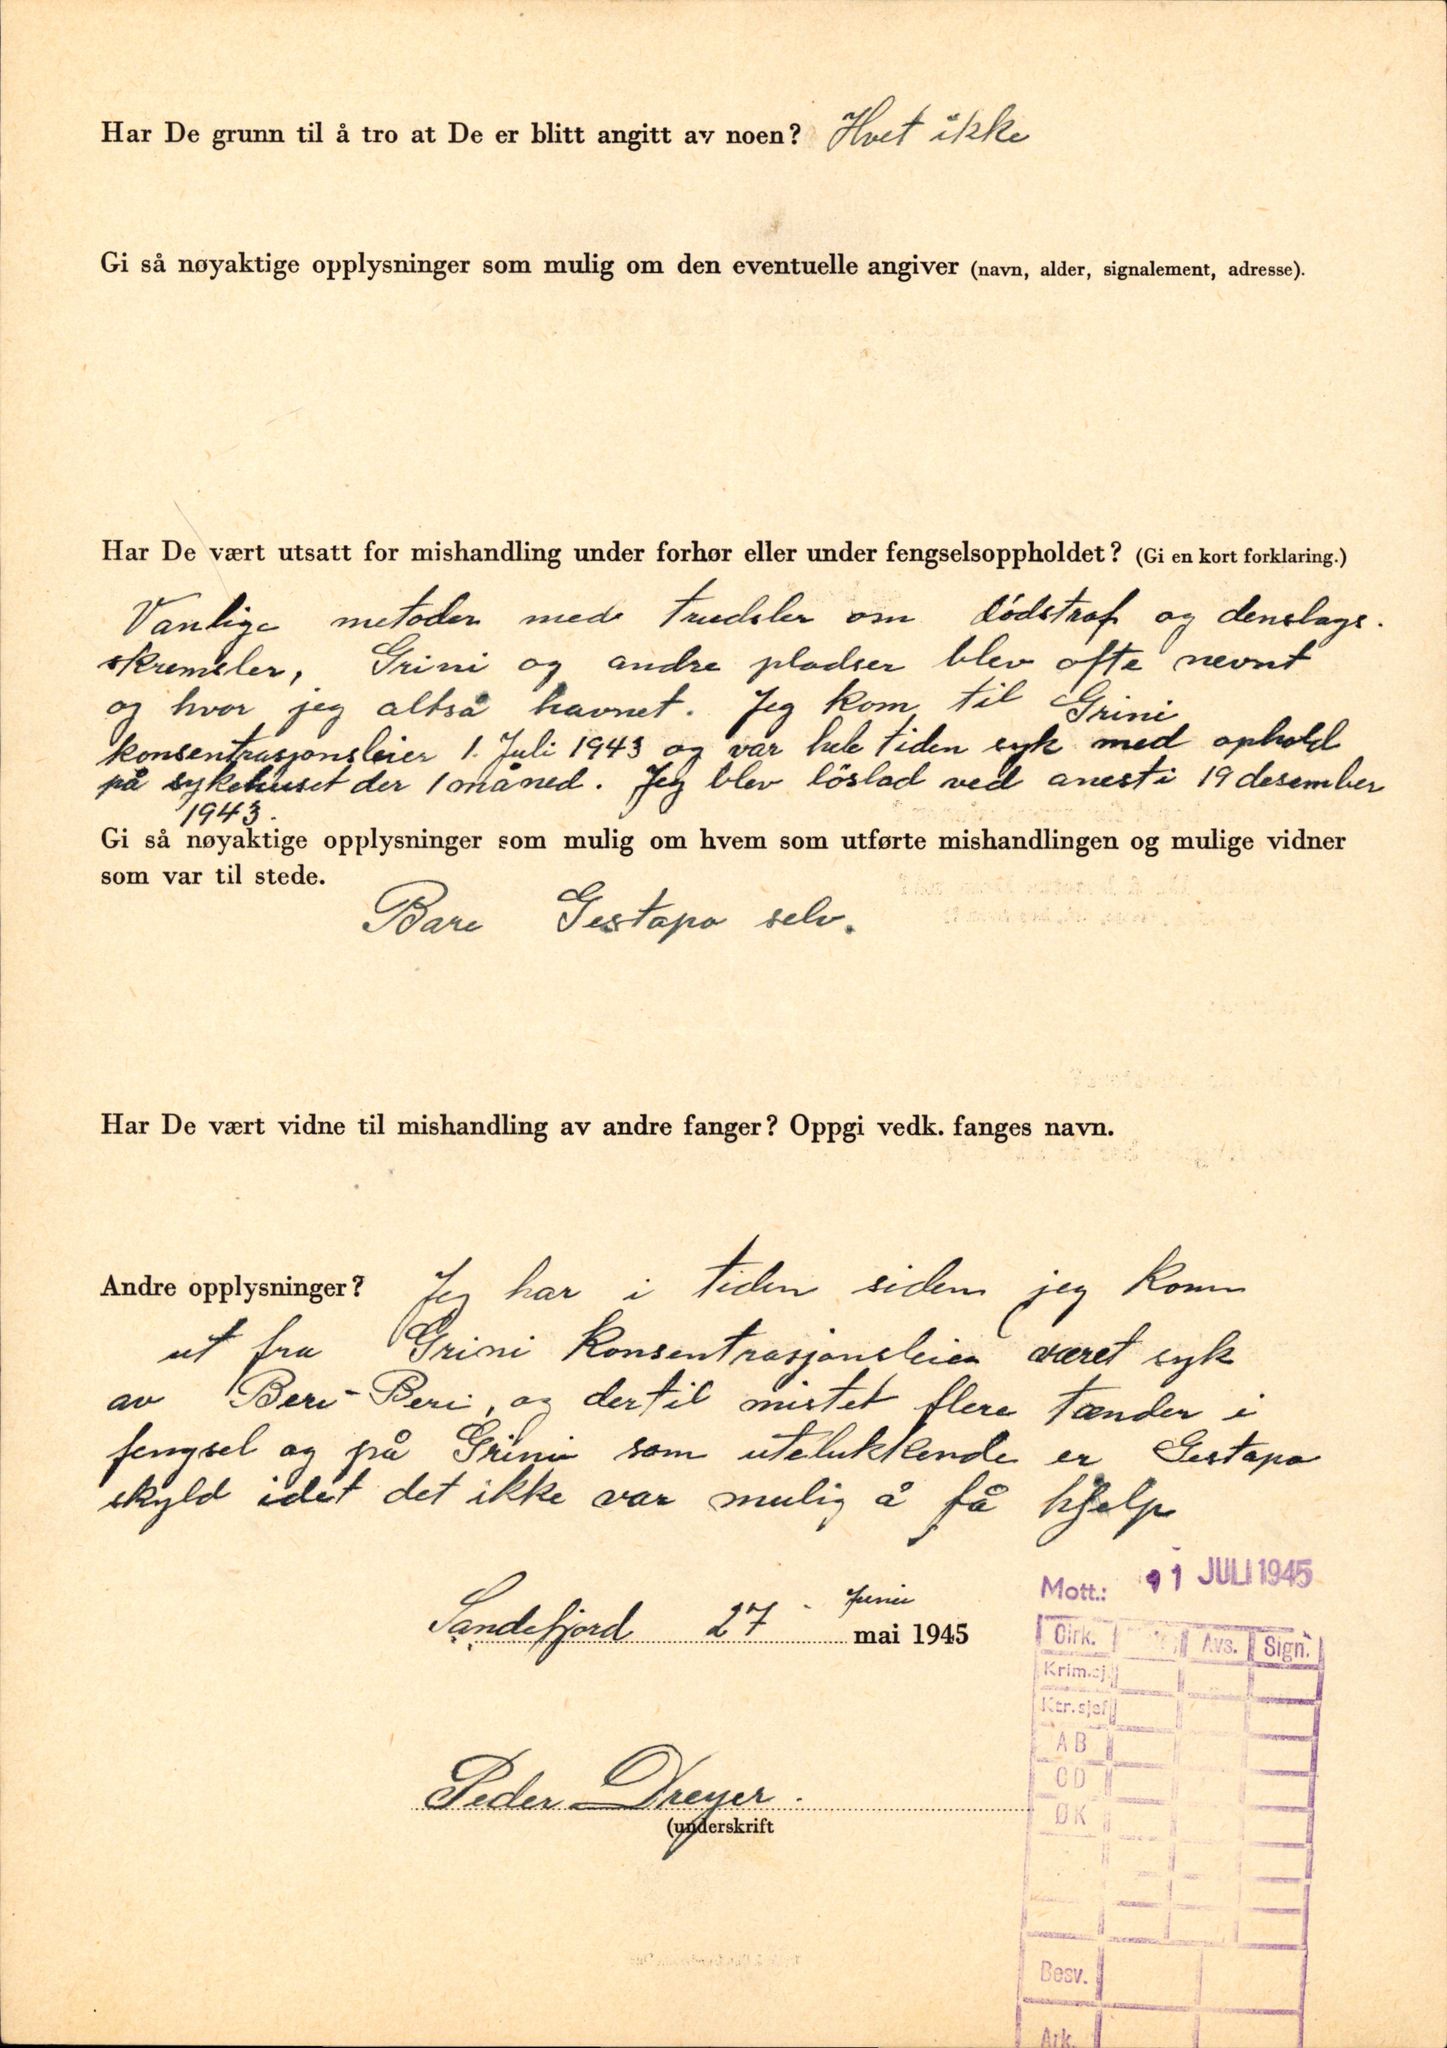 Har De grunn til å tro at De er blitt angitt av noen? Hvet ikke
Gi så nøyaktige opplysninger som mulig om den eventuelle angiver (navn, alder, signalement, adresse).
Har De vært utsatt for mishandling under forhør eller under fengselsoppholdet? (Gi en kort forklaring.)
Vanlige metoder med trudsler om dödstraf og denslags.
skremsler, Grini og andre pladser blev ofte nevnt
og hvor jeg altså havnet. Jeg kom til Grini
konsentrasjonsleier 1. Juli 1943 og var hele tiden syk med ophold
på sykehuset der 1 måned. Jeg blev löslad ved anesti 19 desember
1943.
Gi så nøyaktige opplysninger som mulig om hvem som utførte mishandlingen og mulige vidner
som var til stede.
Bare Gestapo selv.
Har De vært vidne til mishandling av andre fanger? Oppgi vedk. fanges navn.
Andre opplysninger? Jeg har i tiden siden jeg kom
ut fra Grini Konsentrasjonsleier været syk
av Beri-Beri, og dertil mistet flere tænder i
fengsel og på Grini som utelukkende er Gestapo
skyld idet det ikke var mulig å få hjelp
Mott.: 11 JULI 1945
Juni
Sandefjord 27 - mai 1945
Dirk. Avs. Sign.
Krim.sj.
Ktr.sjef
AB
CD
ØK
Peder Dreyer.
(underskrift
Besv.
Ark.